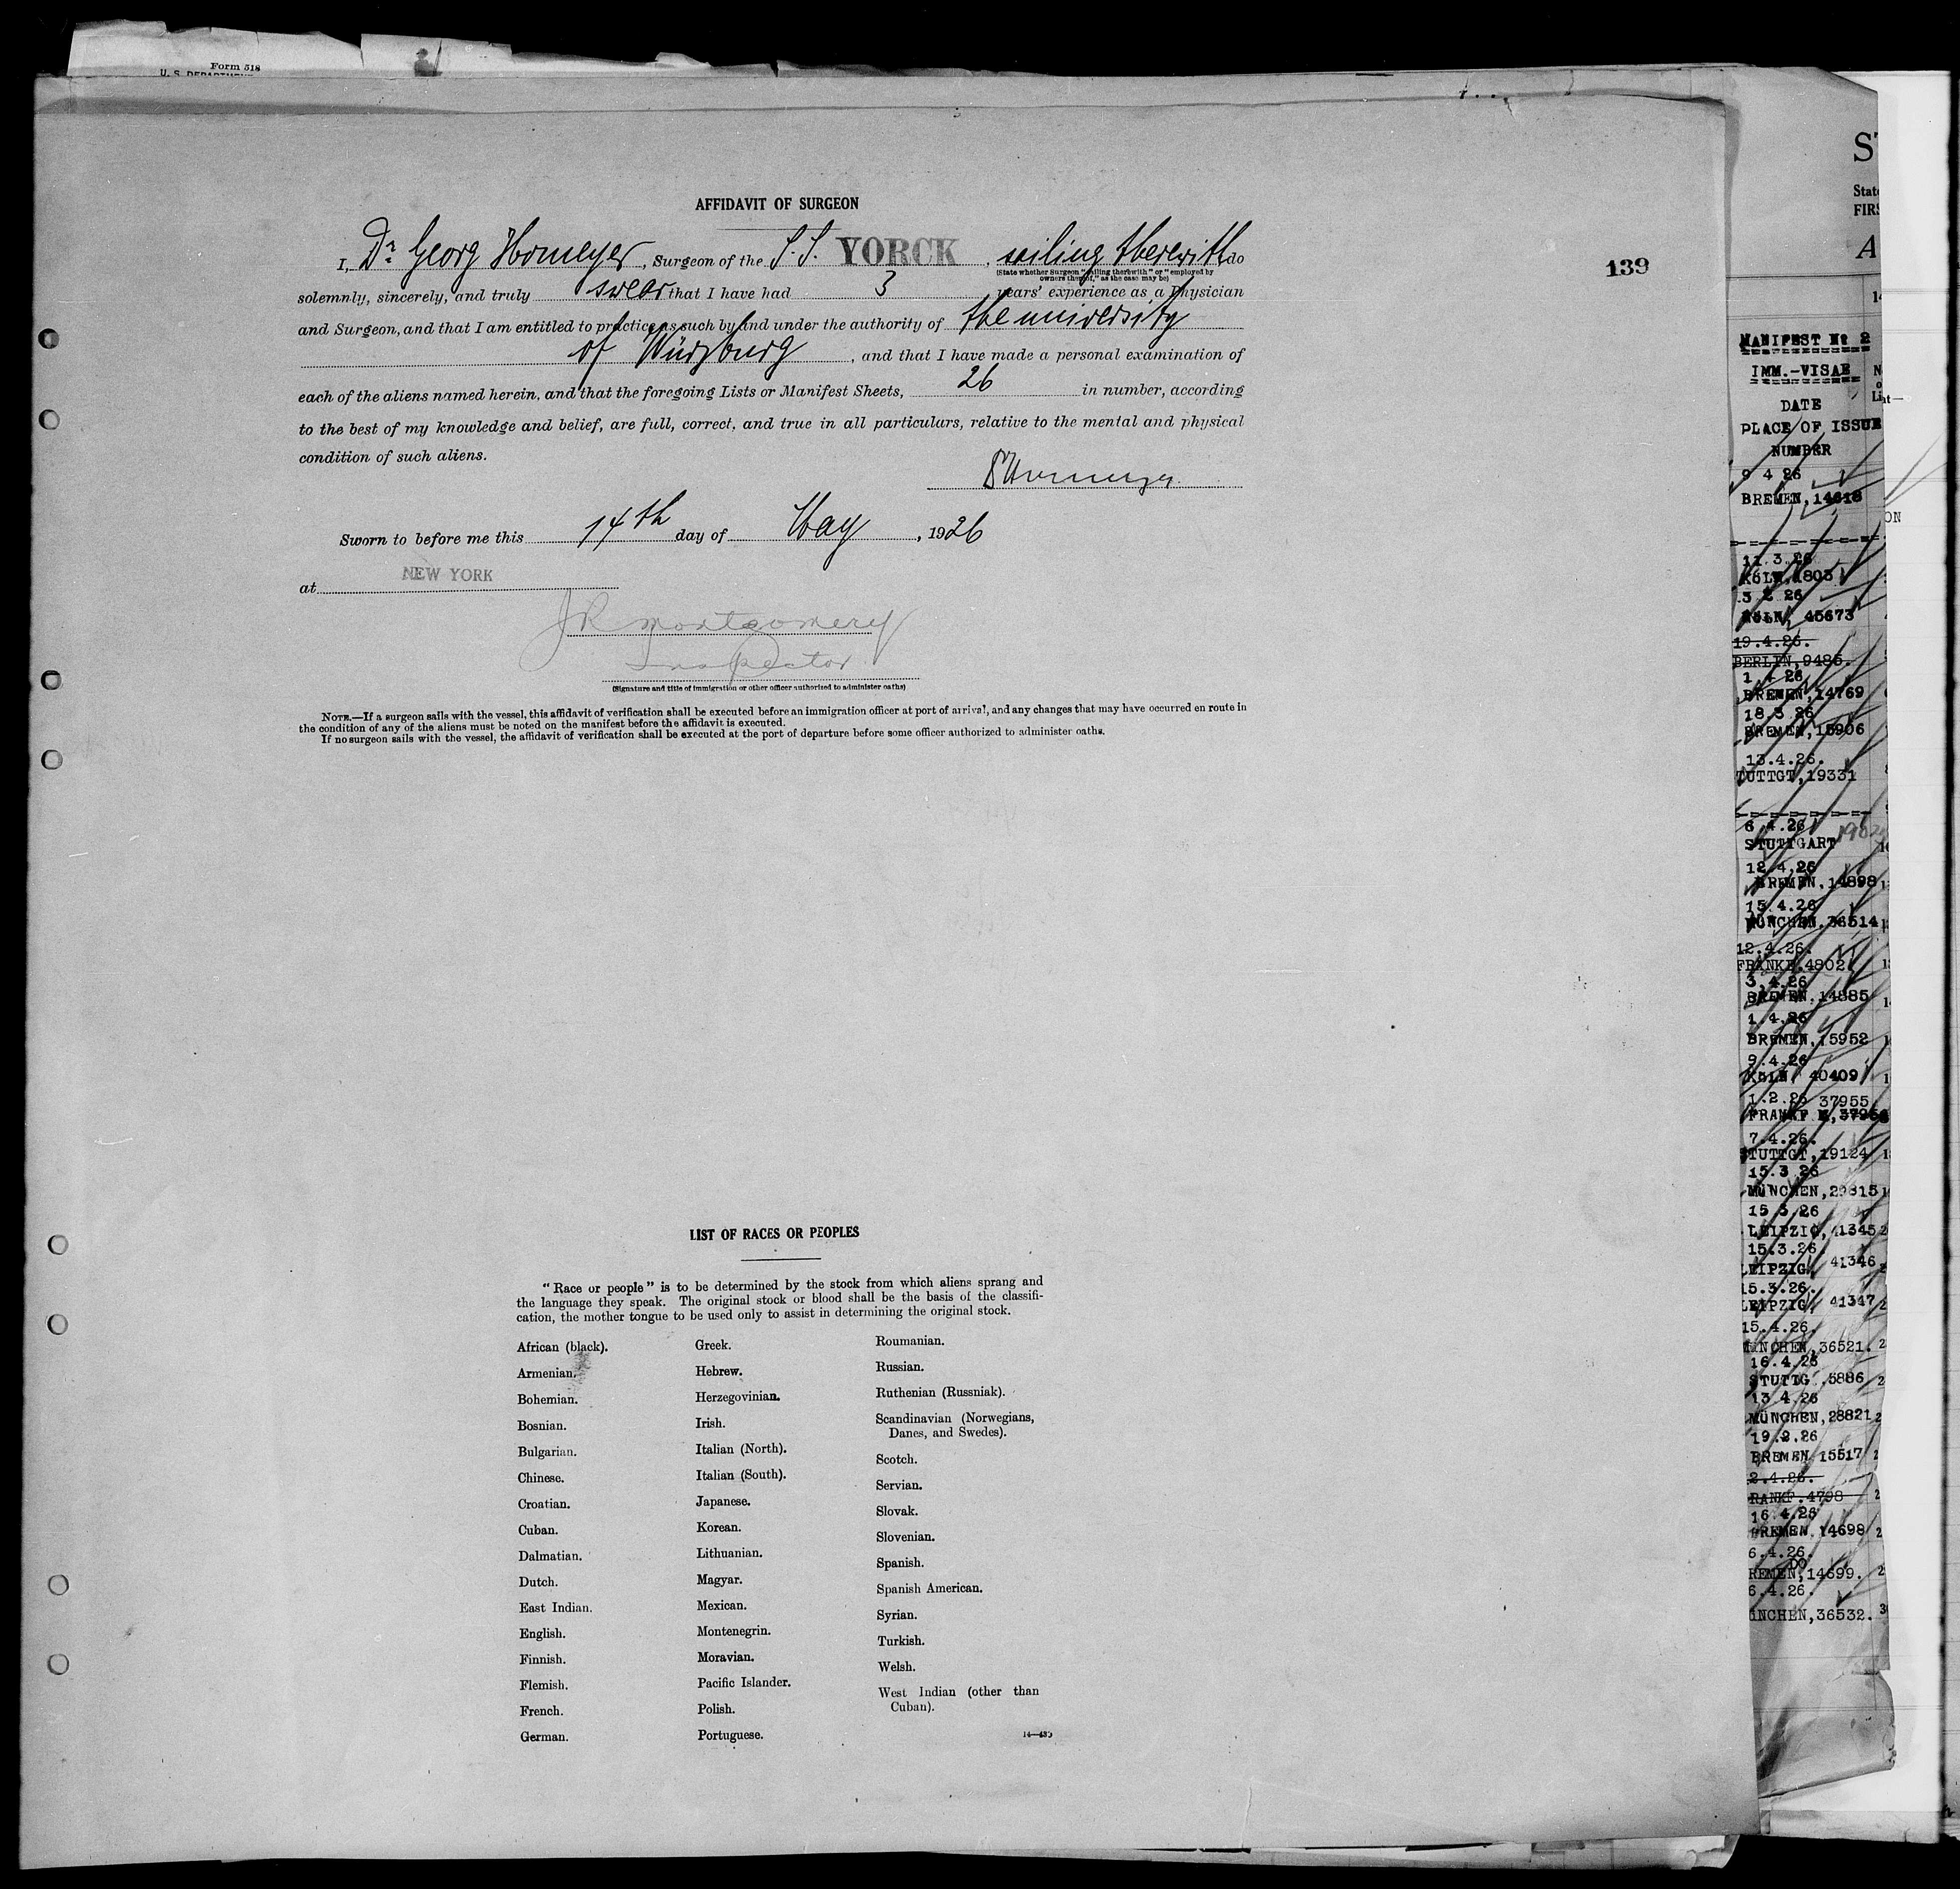 Form 518
AFFIDAVIT OF SURGEON
I, Dr. Georg Homeyer, Surgeon of the S.S. YORCK, sailing therewith do
(State whether Surgeon "sailing therewith" or "employed by
owners thereof," as the case may be)
139
solemnly, sincerely, and truly swear that I have had 3 years' experience as a Physician
and Surgeon, and that I am entitled to practice as such by and under the authority of the university
of Würzburg, and that I have made a personal examination of
each of the aliens named herein, and that the foregoing Lists or Manifest Sheets, 26 in number, according
to the best of my knowledge and belief, are full, correct, and true in all particulars, relative to the mental and physical
condition of such aliens.
Sworn to before me this 14th day of May, 1926
at NEW YORK
JR Montgomery
Inspector
(Signature and title of immigration or other officer authorized to administer oaths)
NOTE.—If a surgeon sails with the vessel, this affidavit of verification shall be executed before an immigration officer at port of arrival, and any changes that may have occurred en route in
the condition of any of the aliens must be noted on the manifest before the affidavit is executed.
If no surgeon sails with the vessel, the affidavit of verification shall be executed at the port of departure before some officer authorized to administer oaths.
LIST OF RACES OR PEOPLES
"Race or people" is to be determined by the stock from which aliens sprang and
the language they speak. The original stock or blood shall be the basis of the classifi-
cation, the mother tongue to be used only to assist in determining the original stock.
African (black).
Armenian.
Bohemian.
Bosnian.
Bulgarian.
Chinese.
Croatian.
Cuban.
Dalmatian.
Dutch.
East Indian.
English.
Finnish.
Flemish.
French.
German.
Greek.
Hebrew.
Herzegovinian.
Irish.
Italian (North).
Italian (South).
Japanese.
Korean.
Lithuanian.
Magyar.
Mexican.
Montenegrin.
Moravian.
Pacific Islander.
Polish.
Portuguese.
Roumanian.
Russian.
Ruthenian (Russniak).
Scandinavian (Norwegians,
Danes, and Swedes).
Scotch.
Servian.
Slovak.
Slovenian.
Spanish.
Spanish American.
Syrian.
Turkish.
Welsh.
West Indian (other than
Cuban).
MANIFEST No 2
IMM.-VISAE
DATE
PLACE OF ISSUE
NUMBER
9 4 26
BREMEN, 14618
11.3.26
KÖLN, 1803
3 2 26
KÖLN, 45673
19.4.26.
BERLIN, 9485.
1.4 26
BREMEN, 14769
18.3 26
BREMEN, 15906
13.4.26.
TUTTGT, 19331
6 4.26
STUTTGART
12.4.26
BREMEN, 14898
15.4.26
MÜNCHEN, 36514
12.4.26.
FRANKF. 4802
3.4.26
BREMEN, 14885
1.4.26
BREMEN, 15952
9.4.26
KÖLN, 40409
1.2.26 37955
FRANKF M,
7.4.26.
STUTTGT, 19124
15.3 26
MÜNCHEN, 29815
15 3 26
LEIPZIG, 41345
15.3.26.
LEIPZIG, 41346
15.3.26.
LEIPZIG, 41347
15.4.26.
MÜNCHEN, 36521.
16.4.26
STUTTG. 5886
13 4 26
MÜNCHEN, 28821
19.2.26
BREMEN 15517
2.4.26.
RANKF. 4798
16 4.26
BREMEN, 14698
6.4.26.
DO
REMEN, 14699.
6.4.26.
ÜNCHEN, 36532.